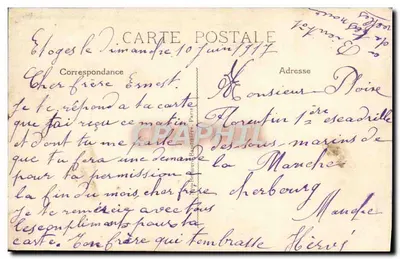 CARTE POSTALE
a bientot
de
nouvelles
Etoges le Dimanche 10 Juin 1917
Correspondance
Adresse
Cher frère Ernest.
Je te répond a ta carte
que j'ai reçu ce matin
et dont tu me parle
que tu fera une demande
pour ta permission a
la fin du mois, cher frère
Je te remercie avec tous
les complimans pour ta
carte. Ton frère qui t'embrasse Hervé
Monsieur Ploix
Florentin 1ère escadrille
des sous marins de
la Manche
cherbourg
Manche